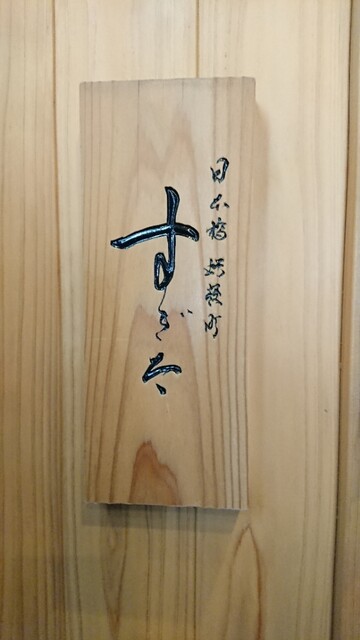 日本橋 蛎殻町
すぎた